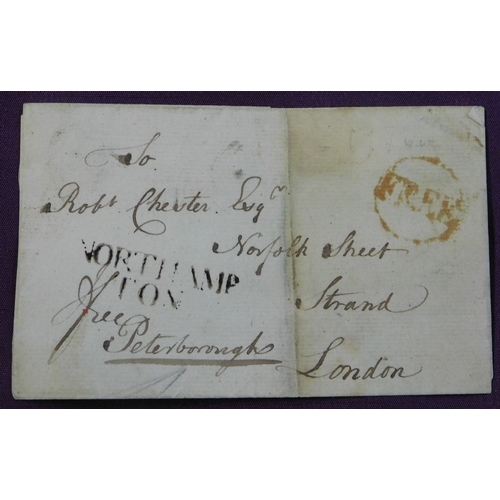 To
Robt Chester Esqr
Norfolk Street
Strand
London
free
Peterborough
NORTHAMP
TON
FREE